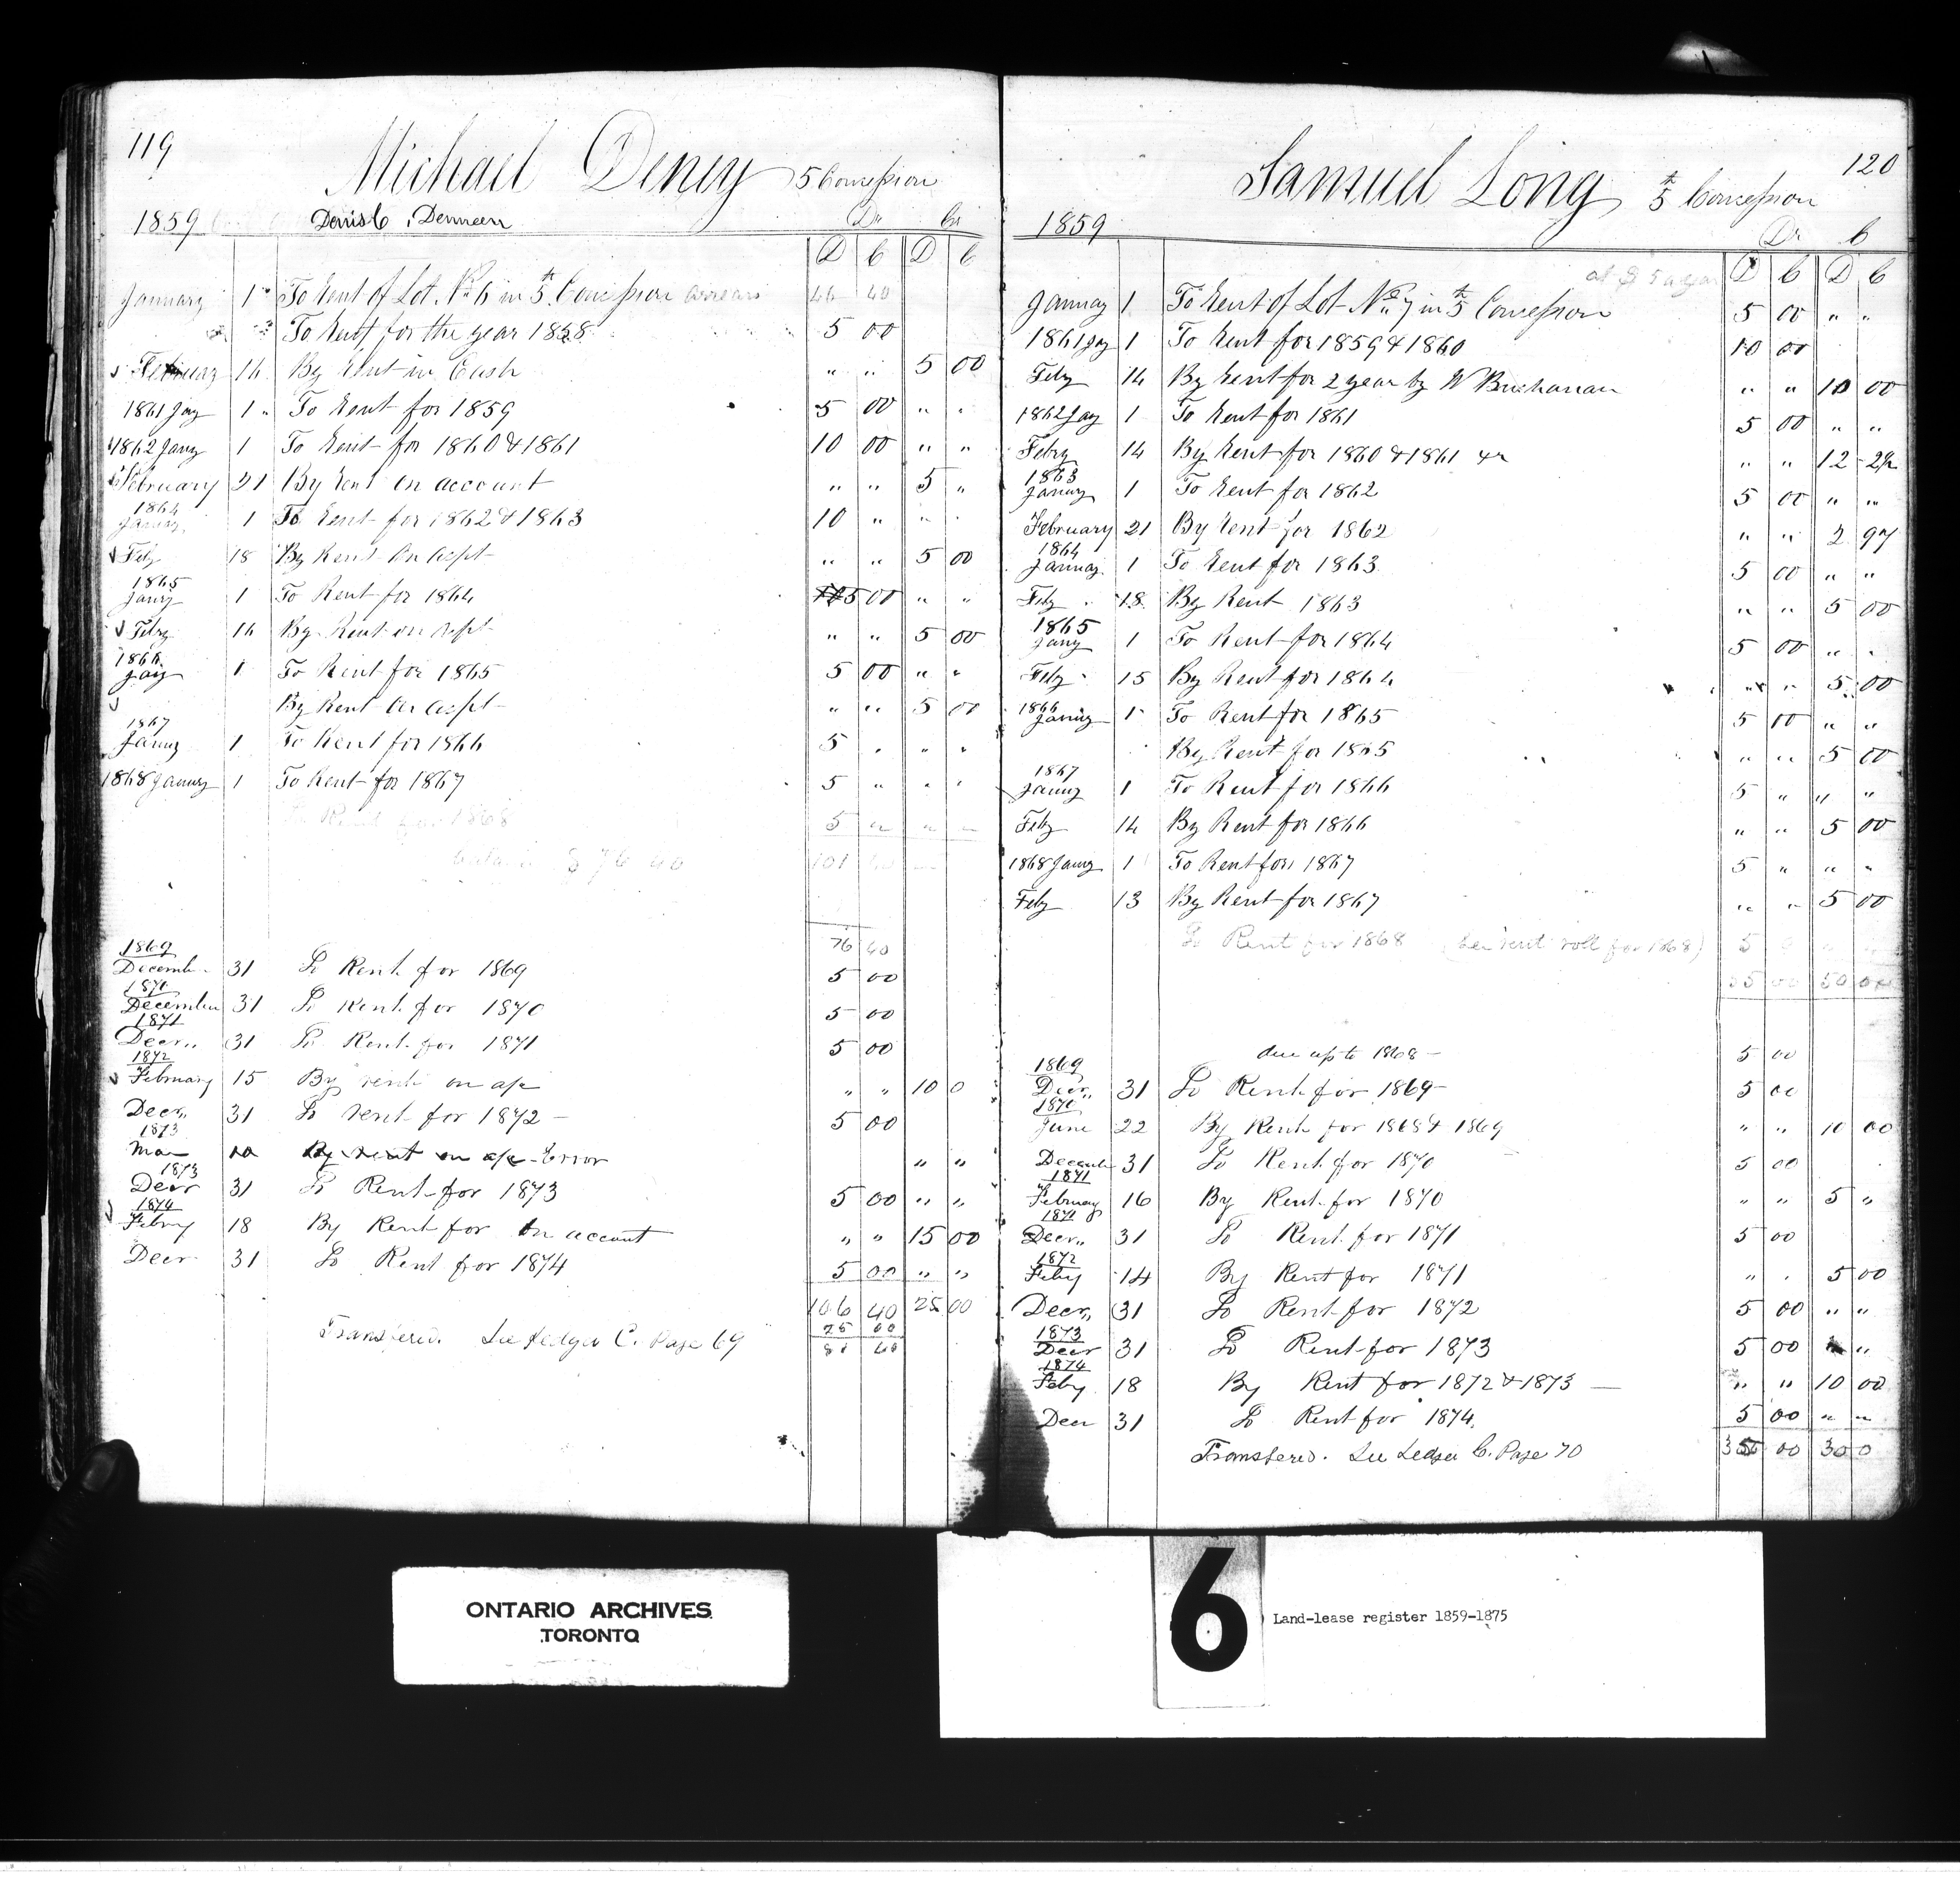 119
Michael Deney 5 Concession
1859 Denis C. Denneen Dr Cr
D C D C
January 1 " To Rent of Lot No 6 in 5th Concession arrears 46 40
To Rent for the year 1858 5 00
February 16 By Rent in Cash " " 5 00
1861 Jay 1 " To Rent for 1859 5 00 " "
1862 Jany 1 To Rent for 1860 & 1861 10 00 " "
February 21 By Rent on account " " 5 "
1864
January 1 To Rent for 1862 & 1863 10 " " "
Feby 18 By Rent on acpt " " 5 00
1865
Jany 1 To Rent for 1864 5 00 " "
Feby 16 By Rent on acpt " " 5 00
1866
Jay 1 To Rent for 1865 5 00 " "
By Rent on acpt " " 5 00
1867
Januy 1 To Rent for 1866 5 " " "
1868 Januy 1 To Rent for 1867 5 " " "
To Rent for 1868 5 " " "
$ 76 40 101
76 40
1869
December 31 To Rent for 1869 5 00
1870
December 31 To Rent for 1870 5 00
1871
Decr,, 31 To Rent for 1871 5 00
1872
February 15 By rent on a/c " " 10 0
Decr,, 31 To rent for 1872 – 5 00
1873
Mar By rent on a/c - Error " "
1873
Decr 31 To Rent for 1873 5 00 " "
1874
Febry 18 By Rent for on account " " 15 00
Decr 31 To Rent for 1874 5 00 " "
106 40 25 00
25 00
81 40
Transfered. See Ledger C. Page 69
120
Samuel Long 5th Concession
1859 Dr C
at $ 5 a year D C D C
January 1 To Rent of Lot No 7 in 5th Concession 5 00 " "
1861 Jay 1 To Rent for 1859 & 1860 10 00
Feby 14 By Rent for 2 year by W Buchanan " " 10 00
1862 Jay 1 To Rent for 1861 5 00 " "
Febry 14 By Rent for 1860 & 1861 " " 12
1863
Januy 1 To Rent for 1862 5 00 " "
February 21 By Rent for 1862 " " 2 97
1864
January 1 To Rent for 1863 5 00 " "
Feby 18 By Rent 1863 " " 5 00
1865
Jany 1 To Rent for 1864 5 00 " "
Feby 15 By Rent for 1864 " " 5 00
1866
Januy 1 To Rent for 1865 5 00 " "
By Rent for 1865 " " 5 00
1867
Januy 1 To Rent for 1866 5 " " "
Feby 14 By Rent for 1866 " " 5 00
1868 Jany 1 To Rent for 1867 5 " " "
Feby 13 By Rent for 1867 " " 5 00
To Rent for 1868 (see rent roll for 1868) 5
55 00 50 00
due up to 1868 – 5 00
1869
Decr,, 31 To Rent for 1869 – 5 00
1870
June 22 By Rent for 1868 & 1869 " " 10 00
Decemb 31 To Rent for 1870 5 00
1871
February 16 By Rent for 1870 " " 5 "
1871
Decr,, 31 To Rent for 1871 5 00
1872
Feby 14 By Rent for 1871 " " 5 00
Decr,, 31 To Rent for 1872 5 00 " "
1873
Decr 31 To Rent for 1873 5 00 "
1874
Feby 18 By Rent for 1872 & 1873 — " " 10 00
Decr 31 To Rent for 1874 5 00 " "
35 00 30 0
Transfered. See Ledger C. Page 70
ONTARIO ARCHIVES
TORONTO
6
Land-lease register 1859-1875